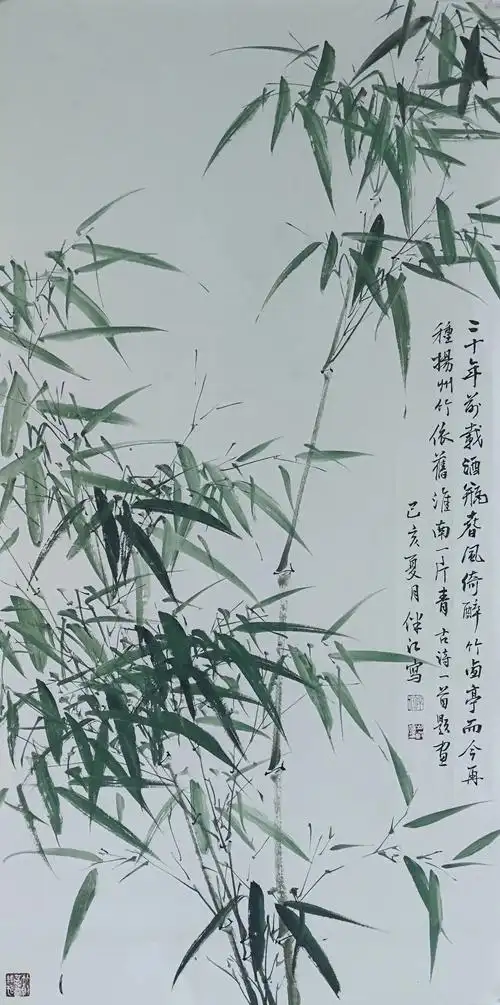 二十年前載酒瓶春風倚醉竹西亭而今再
種揚州竹依舊淮南一片青古詩一首題畫
己亥夏月江寫